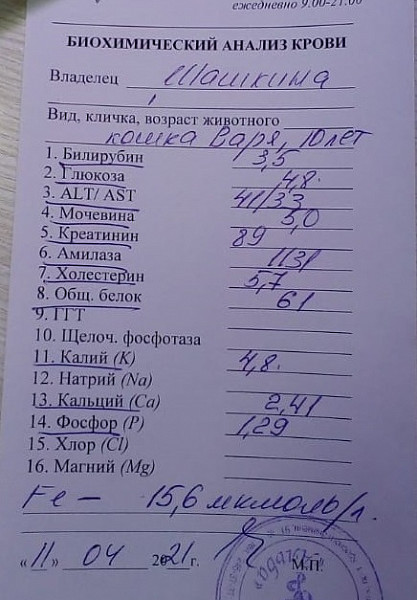 ежедневно 9.00-21.00
БИОХИМИЧЕСКИЙ АНАЛИЗ КРОВИ
Владелец Шашкина
Вид, кличка, возраст животного
кошка Варя, 10 лет
1. Билирубин 3,5
2. Глюкоза 4,8.
3. ALT/ AST 41/33
4. Мочевина 5,0
5. Креатинин 89
6. Амилаза 1131
7. Холестерин 5,7
8. Общ. белок 61
9. ГГТ
10. Щелоч. фосфотаза
11. Калий (K) 4,8.
12. Натрий (Na)
13. Кальций (Ca) 2,41
14. Фосфор (P) 1,29
15. Хлор (Cl)
16. Магний (Mg)
Fe – 15,6 мкмоль/л.
«11» 04 2021г. М.П.